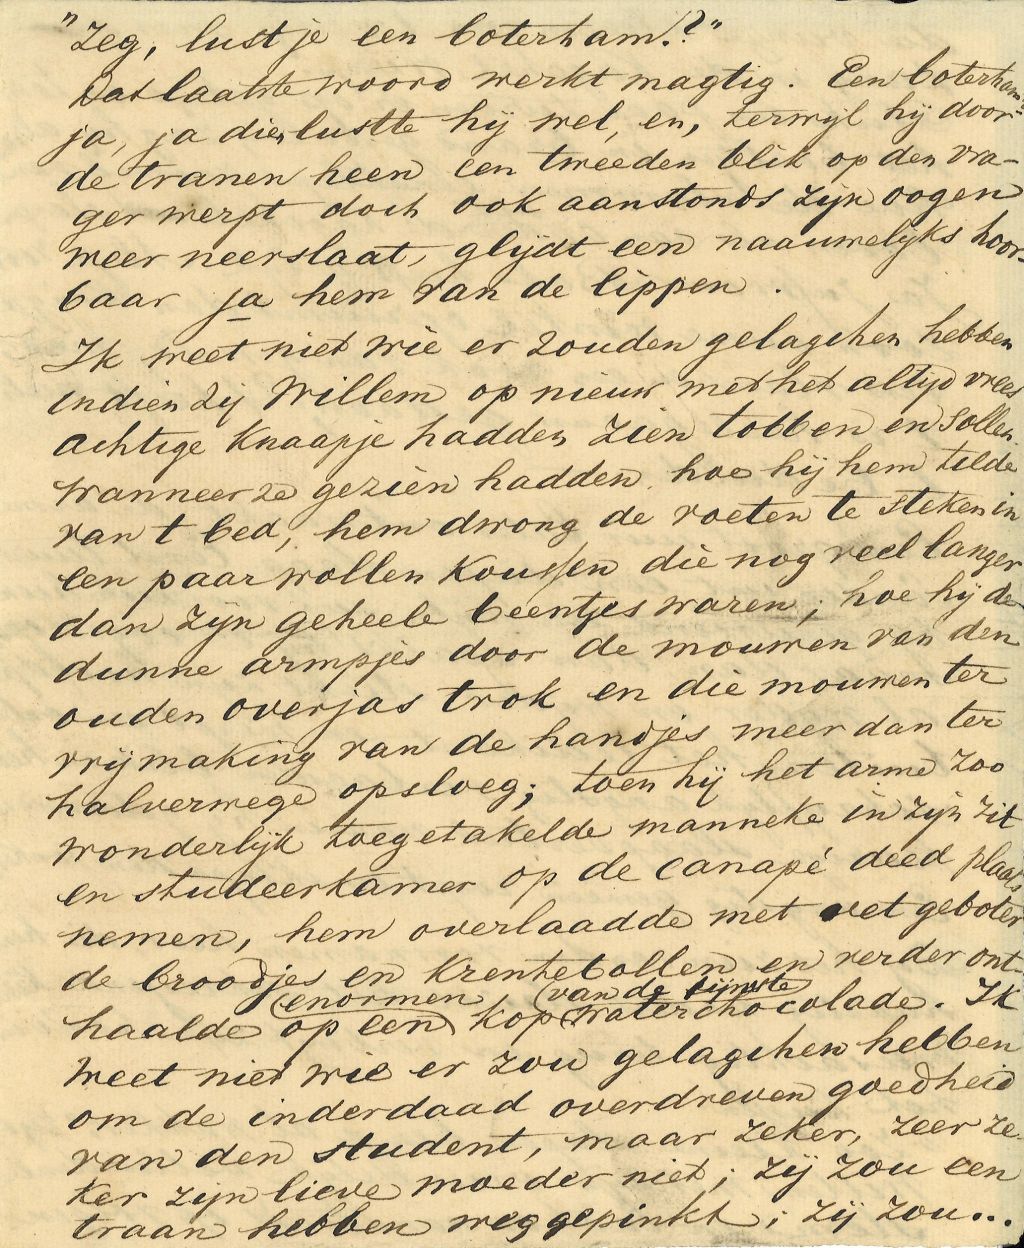 "Zeg, lust je een boterham?"
Dat laatste woord werkt magtig. Een boterham
ja, ja die lustte hij wel, en, terwijl hij door
de tranen heen een tweeden blik op den vra-
ger werpt doch ook aanstonds zijn oogen
weer neerslaat, glijdt een naauwelijks hoor-
baar ja hem van de lippen.
Ik weet niet wie er zouden gelagchen hebben
indien zij Willem op nieuw met het altijd vrees
achtige knaapje hadden zien tobben en sollen
wanneer ze gezien hadden hoe hij hem tilde
van t bed, hem dwong de voeten te steken in
een paar wollen koussen die nog veel langer
dan zijn geheele beentjes waren; hoe hij de
dunne armpjes door de mouwen van den
ouden overjas trok en die mouwen ter
vrijmaking van de handjes meer dan ter
halverwege opsloeg; toen hij het arme zoo
wonderlijk toegetakelde manneke in zijn zit
en studeerkamer op de canapé deed plaats
nemen, hem overlaadde met vet geboter
de broodjes en krentebollen en verder ont-
enormen van de fijnste
haalde op een kop waterchocolade. Ik
weet niet wie er zou gelagchen hebben
om de inderdaad overdreven goedheid
van den student, maar zeker, zeer ze-
ker zijn lieve moeder niet; zij zou een
traan hebben weggepinkt; zij zou...